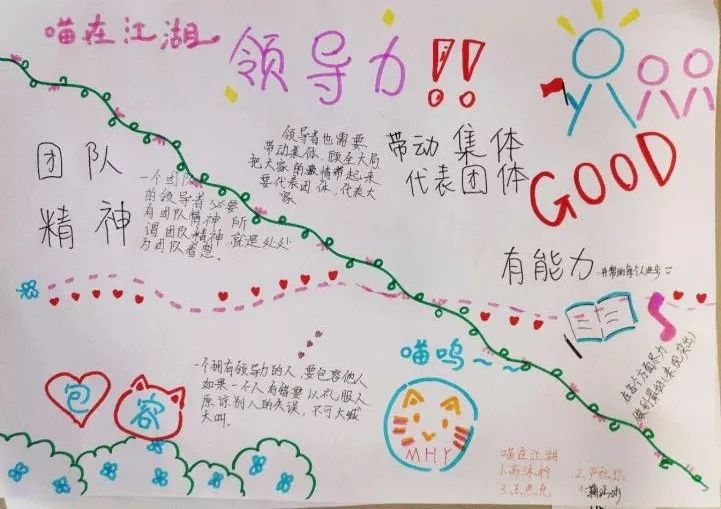 喵在江湖
领导力!!
领导者也需要
带动集体，顾全大局
把大家的激情带起来
要代表团体，代表大
家
带动集体
代表团体
GOOD
团队
精神
一个团队
的领导者必要
有团队精神，所
谓团队精神就是处处
为团队着想。
有能力
并帮助每个人进步
在各个方面尽力
做到最好(表现突出)
喵呜~~
MHY
包容
一个拥有领导力的人，要包容他人
如果一个人有错要以礼服人
原谅别人的失误，不可大喊
大叫。
喵在江湖
1.
2.
3.王
4.